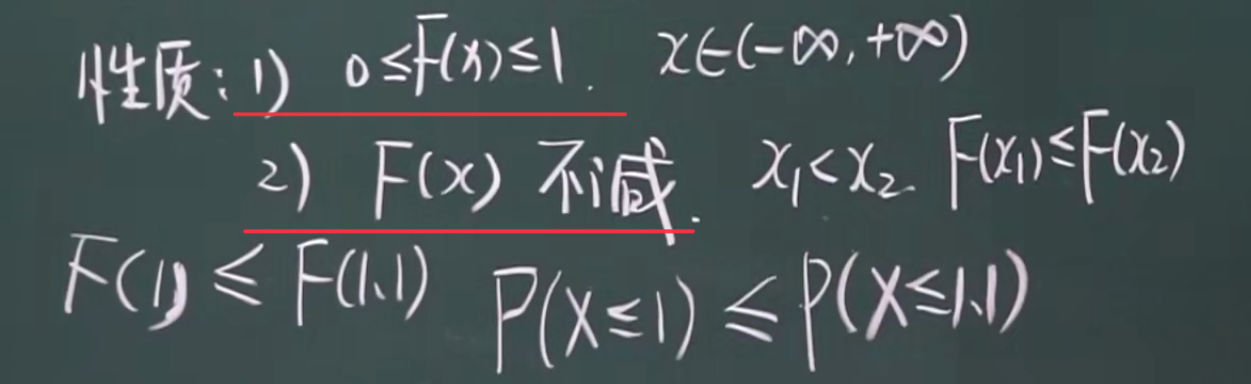 性质:1) 0≤F(x)≤1. x∈(-∞,+∞)
2) F(x) 不减. x₁<x₂ F(x₁)≤F(x₂)
F(1)≤F(1.1) P(X≤1)≤P(X≤1.1)